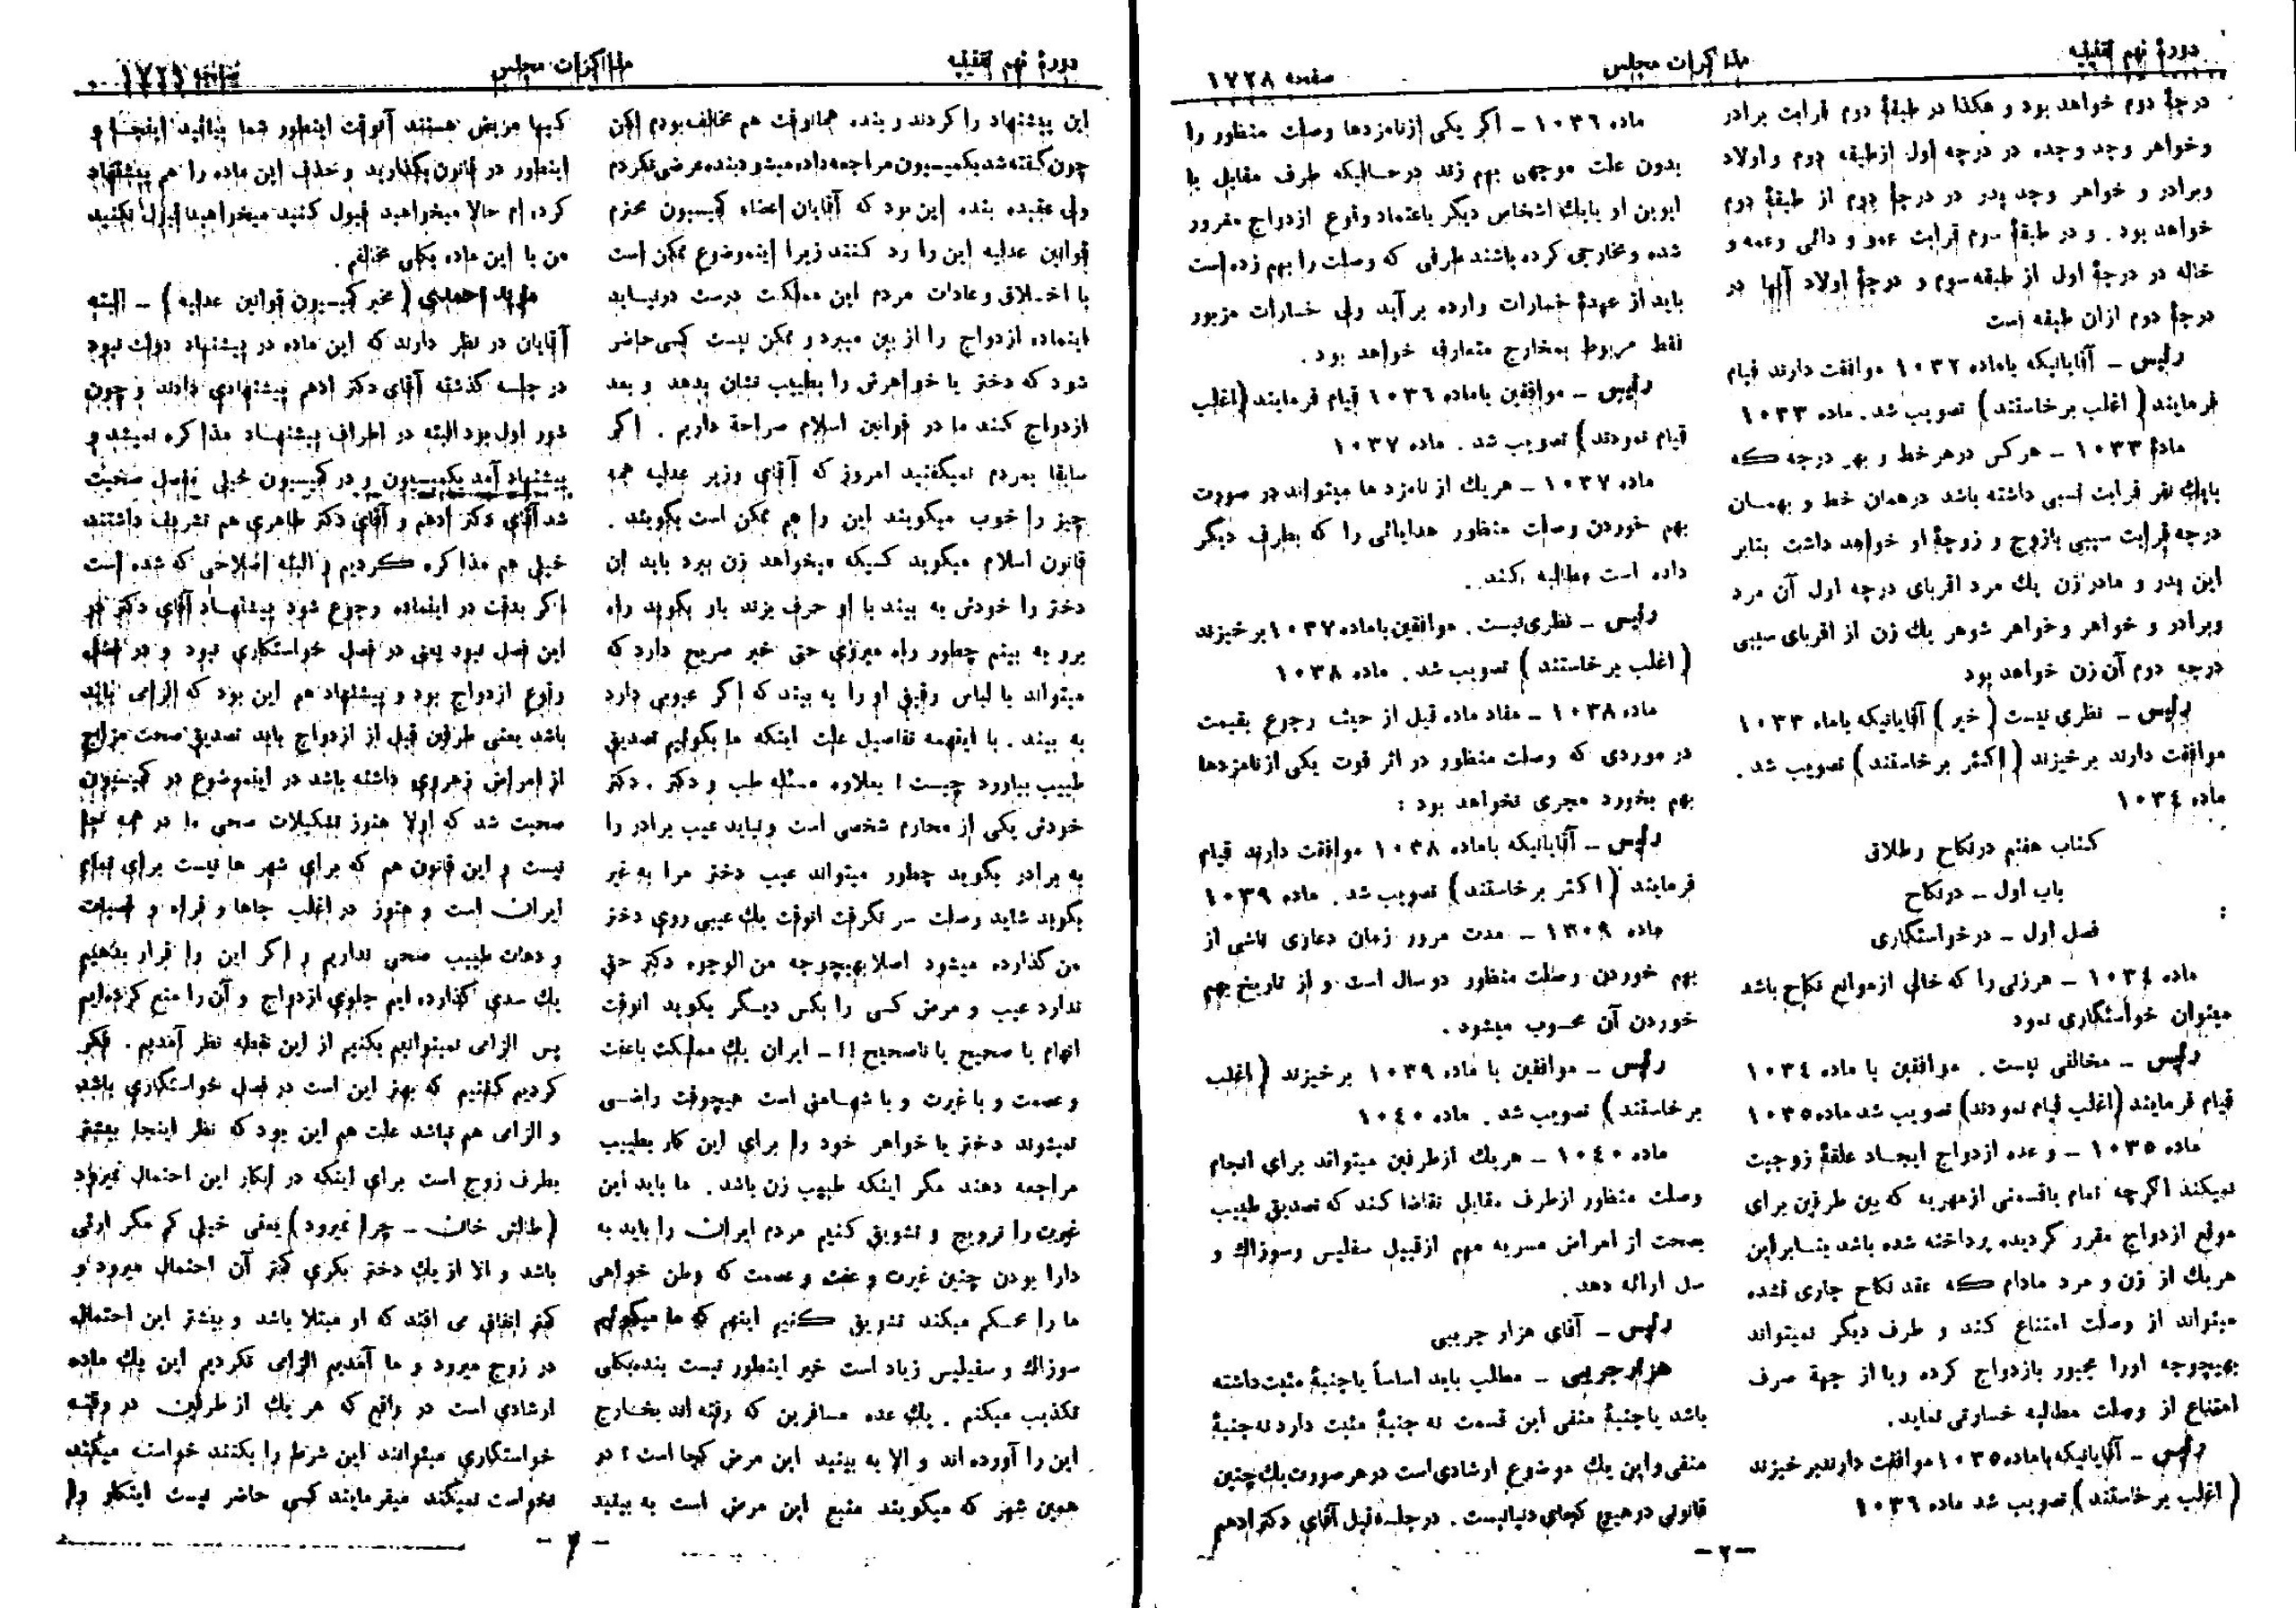 دورهٔ نهم تقنینیه
مذاکرات مجلس
صفحه ۱۷۲۸
درجهٔ دوم خواهد بود و هکذا در طبقهٔ دوم قرابت برادر
وخواهر وجد وجده در درجه اول ازطبقه دوم و اولاد
وبرادر و خواهر وجد پدر در درجهٔ دوم از طبقهٔ دوم
خواهد بود . و در طبقهٔ سوم قرابت عمو و دائی وعمه و
خاله در درجهٔ اول از طبقه سوم و درجهٔ اولاد آنها در
درجهٔ دوم ازان طبقه است
رئیس ـ آقایانیکه باماده ۱۰۳۲ موافقت دارند قیام
فرمایند ( اغلب برخاستند ) تصویب شد . ماده ۱۰۳۳
مادهٔ ۱۰۳۳ ـ هرکس درهر خط و بهر درجه که
بایك نفر قرابت نسبی داشته باشد درهمان خط و بهمان
درجه قرابت سببی بازوج و زوجهٔ او خواهد داشت بنابر
این پدر و مادر زن یك مرد اقربای درجه اول آن مرد
وبرادر و خواهر وخواهر شوهر یك زن از اقربای سببی
درجه دوم آن زن خواهد بود
رئیس ـ نظری نیست ( خیر ) آقایانیکه باماده ۱۰۳۳
موافقت دارند برخیزند ( اکثر برخاستند ) تصویب شد .
ماده ۱۰۳٤
کتاب هفتم درنکاح وطلاق
باب اول ـ درنکاح
فصل اول ـ درخواستگاری
ماده ۱۰۳٤ ـ هرزنی را که خالی ازموانع نکاح باشد
میتوان خواستگاری نمود
رئیس ـ مخالفی نیست . موافقین با ماده ۱۰۳٤
قیام فرمایند (اغلب قیام نمودند) تصویب شد ماده ۱۰۳٥
ماده ۱۰۳٥ ـ وعده ازدواج ایجاد علقهٔ زوجیت
نمیکند اگرچه تمام یاقسمتی ازمهریه که بین طرفین برای
موقع ازدواج مقرر گردیده پرداخته شده باشد بنابراین
هریك از زن و مرد مادام که عقد نکاح جاری نشده
میتواند از وصلت امتناع کند و طرف دیگر نمیتواند
بهیچوجه اورا مجبور بازدواج کرده ویا از جهة صرف
امتناع از وصلت مطالبه خسارتی نماید .
رئیس ـ آقایانیکه باماده ۱۰۳٥ موافقت دارند برخیزند
( اغلب برخاستند ) تصویب شد ماده ۱۰۳٦
ماده ۱۰۳٦ ـ اگر یکی ازنامزدها وصلت منظور را
بدون علت موجهی بهم زند درحالیکه طرف مقابل یا
ابوین او یایك اشخاص دیگر باعتماد وقوع ازدواج مغرور
شده ومخارجی کرده باشند طرفی که وصلت را بهم زده است
باید از عهدهٔ خسارات وارده برآید ولی خسارات مزبور
فقط مربوط بمخارج متعارفه خواهد بود .
رئیس ـ موافقین باماده ۱۰۳٦ قیام فرمایند (اغلب
قیام نمودند) تصویب شد . ماده ۱۰۳۷
ماده ۱۰۳۷ ـ هریك از نامزدها میتواند در صورت
بهم خوردن وصلت منظور هدایائی را که بطرف دیگر
داده است مطالبه کند .
رئیس ـ نظری نیست . موافقین باماده ۱۰۳۷ برخیزند
( اغلب برخاستند ) تصویب شد . ماده ۱۰۳۸
ماده ۱۰۳۸ ـ مفاد ماده قبل از حیث رجوع بقیمت
در موردی که وصلت منظور در اثر فوت یکی ازنامزدها
بهم بخورد مجری نخواهد بود :
رئیس ـ آقایانیکه باماده ۱۰۳۸ موافقت دارند قیام
فرمایند ( اکثر برخاستند ) تصویب شد . ماده ۱۰۳۹
ماده ۱۳۰۹ ـ مدت مرور زمان دعاوی ناشی از
بهم خوردن وصلت منظور دوسال است و از تاریخ بهم
خوردن آن محسوب میشود .
رئیس ـ موافقین با ماده ۱۰۳۹ برخیزند (اغلب
برخاستند) تصویب شد . ماده ۱۰٤۰
ماده ۱۰٤۰ ـ هریك ازطرفین میتواند برای انجام
وصلت منظور ازطرف مقابل تقاضا کند که تصدیق طبیب
بصحت از امراض مسریه مهم ازقبیل سفلیس وسوزاك و
سل ارائه دهد .
رئیس ـ آقای هزار جریبی
هزارجریبی ـ مطلب باید اساساً یاجنبهٔ مثبت داشته
باشد یاجنبهٔ منفی این قسمت نه جنبهٔ مثبت دارد نه جنبهٔ
منفی واین یك موضوع ارشادی است درهر صورت یك چنین
قانونی درهیچ کجای دنیانیست . درجلسه قبل آقای دکتر ادهم
ـ ۲ ـ
دورهٔ نهم تقنینیه
مذاکرات مجلس
صفحه ۱۷۲۹
این پیشنهاد را کردند و بنده همانوقت هم مخالف بودم لکن
چون گفته شد بکمیسیون مراجعه داده میشود بنده عرضی نکردم
ولی عقیده بنده این بود که آقایان اعضاء کمیسیون محترم
قوانین عدلیه این را رد کنند زیرا اینموضوع ممکن است
با اخلاق وعادات مردم این مملکت درست درنیاید
اینماده ازدواج را از بین میبرد و ممکن نیست کسی حاضر
شود که دختر یا خواهرش را بطبیب نشان بدهد و بعد
ازدواج کند ما در قوانین اسلام صراحة داریم . اگر
سابقا بمردم نمیگفتید امروز که آقای وزیر عدلیه همه
چیز را خوب میگویند این را هم ممکن است بگویند .
قانون اسلام میگوید کسیکه میخواهد زن ببرد باید آن
دختر را خودش به بیند با او حرف بزند باو بگوید راه
برو به بینم چطور راه میروی حتی خبر صریح دارد که
میتواند با لباس رقیق او را به بیند که اگر عیوبی دارد
به بیند . با اینهمه تفاصیل علت اینکه ما بگوئیم تصدیق
طبیب بیاورد چیست ؟ بعلاوه مسئله طب و دکتر . دکتر
خودش یکی از محارم شخصی است ونباید عیب برادر را
به برادر بگوید چطور میتواند عیب دختر مرا به غیر
بگوید شاید وصلت سر نگرفت آنوقت یك عیبی روی دختر
من گذارده میشود اصلا بهیچوجه من الوجوه دکتر حق
ندارد عیب و مرض کسی را بکس دیگر بگوید آنوقت
اتهام یا صحیح یا ناصحیح !! ـ ایران یك مملکت باعفت
وعصمت و باغیرت و با شهامتی است هیچوقت راضی
نمیشوند دختر یا خواهر خود را برای این کار بطبیب
مراجعه دهند مگر اینکه طبیب زن باشد . ما باید این
غیرت را ترویج و تشویق کنیم مردم ایران را باید به
دارا بودن چنین غیرت و عفت و عصمت که وطن خواهی
ما را محکم میکند تشویق کنیم اینهم که ما میگوئیم
سوزاك و سفیلیس زیاد است خیر اینطور نیست بنده بکلی
تکذیب میکنم . یك عده مسافرین که رفته اند بخارج
این را آورده اند و الا به بینید این مرض کجا است ؟ در
همین شهر که میگویند منبع این مرض است به بینید
کیها مریض هستند آنوقت اینطور شما بیائید اینجا و
اینطور در قانون بگذارید و حذف این ماده را هم پیشنهاد
کرده ام حالا میخواهید قبول کنید میخواهید قبول نکنید
من با این ماده بکلی مخالفم .
مؤید احمدی ( مخبر کمیسیون قوانین عدلیه ) ـ البته
آقایان در نظر دارند که این ماده در پیشنهاد دولت نبود
در جلسه گذشته آقای دکتر ادهم پیشنهادی دادند و چون
شور اول بود البته در اطراف پیشنهاد مذاکره نمیشد و
پیشنهاد آمد بکمیسیون و در کمیسیون خیلی مفصل صحبت
شد آقای دکتر ادهم و آقای دکتر طاهری هم تشریف داشتند
خیلی هم مذاکره کردیم و البته اصلاحی که شده است
اگر بدقت در اینماده رجوع شود پیشنهاد آقای دکتر در
این فصل نبود یعنی در فصل خواستگاری نبود و در فصل
وقوع ازدواج بود و پیشنهاد هم این بود که الزامی باید
باشد یعنی طرفین قبل از ازدواج باید تصدیق صحت مزاج
از امراض زهروی داشته باشد در اینموضوع در کمیسیون
صحبت شد که اولا هنوز تشکیلات صحی ما در همه جا
نیست و این قانون هم که برای شهر ها نیست برای تمام
ایران است و هنوز در اغلب جاها و قراء و قصبات
و دهات طبیب صحی نداریم و اگر این را قرار بدهیم
یك سدی گذارده ایم جلوی ازدواج و آن را منع کرده ایم
پس الزامی نمیتوانیم بکنیم از این نقطه نظر آمدیم . فکر
کردیم گفتیم که بهتر این است در فصل خواستگاری باشد
و الزامی هم نباشد علت هم این بود که نظر اینجا بیشتر
بطرف زوج است برای اینکه در ابکار این احتمال نمیرود
(طالش خان ـ چرا نمیرود) یعنی خیلی کم مگر ارثی
باشد و الا از یك دختر بکری کمتر آن احتمال میرود و
کمتر اتفاق می افتد که او مبتلا باشد و بیشتر این احتمال
در زوج میرود و ما آمدیم الزامی نکردیم این یك ماده
ارشادی است در واقع که هر یك از طرفین در وقت
خواستگاری میتوانند این شرط را بکنند خواست میکند
نخواست نمیکند میفرمایند کسی حاضر نیست اینکار را